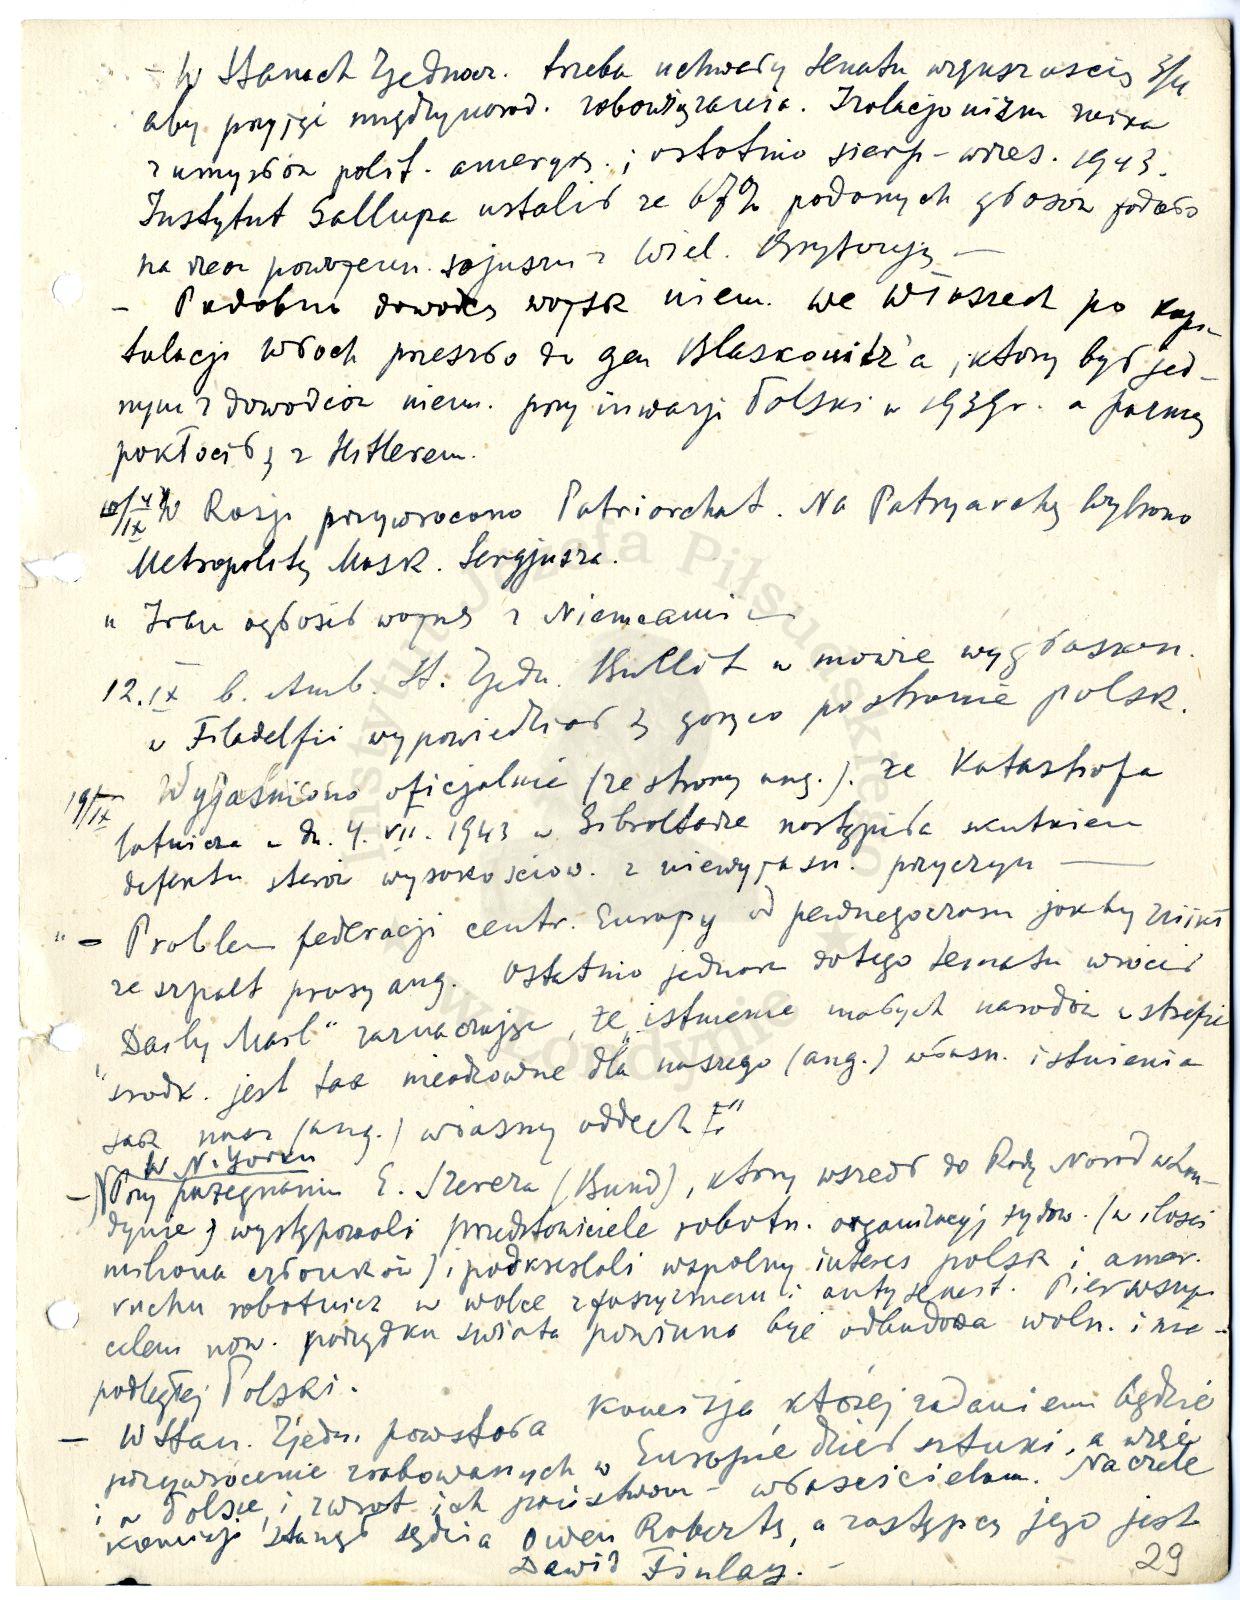 - W Stanach Zjednocz. trzeba uchwały senatu większością 3/4
aby przyjąć międzynarod. zobowiązania. Izolacjonizm znika
z umysłów polit. ameryk. i ostatnio sierp-wrzes. 1943.
Instytut Gallupa ustalił ze 67% podanych głosów padało
na rzecz powojenn. sojuszu z Wiel. Brytanją —
- Podobno dowodcą wojsk niem. we Włoszech po kapi-
tulacji Włoch przeszło do gen Blaskowitz'a, ktory był jed-
nym z dowodców niem. przy inwazji Polski w 1939r. a pozniej
pokłócił ę z Hitlerem.
10/IX W Rosji przywrocono Patriarchat. Na Patryarchę wybrano
Metropolitę Mosk. Sergjusza.
" Iran ogłosił wojnę z Niemcami —
12.IX b. Amb. St. Zjedn. Bullit w mowie wygłoszon.
w Filadelfii wypowiedział ę gorąco po stronie polsk.
19/IX Wyjaśniono oficjalnie (ze strony ang.). ze Katastrofa
lotnicza w dn. 4.VII.1943 w Gibraltarze nastąpiła skutkiem
defektu sterów wysokościow. z niewyjasn. przyczyn —
" - Problem federacji centr. Europy od pewnegoczasu jakby znikł
ze szpalt prasy ang. Ostatnio jednak dotego tematu wrócił
"Daily Mail" zaznaczając, że "istnienie małych narodów w strefie
srodk. jest tak nieodzowne dla naszego (ang.) własn. istnienia
jak nasz (ang.) własny oddech"
W N. Yorku
- Przy pożegnaniu E. Szerera (Bund), ktory wszedł do Rady Narod w Lon-
dynie występowali przedstawiciele robotn. organizacyj żydow. (w ilosci
miliona członków) i podkreslali wspolny interes polsk i amer.
ruchu robotnicz w walce z faszyzmem i antysemit. Pierwszym
celem now. porządku swiata powinna być odbudowa woln. i nie-
podległej Polski.
- W Stan. Zjedn. powstała Komisja której zadaniem będzie
przywrócenie zrabowanych w Europie dzieł sztuki, a więc
i w Polsce i zwrot ich państwom - właścicielom. Na czele
komisji stanął sędzia Owen Roberts, a zastępcą jego jest
Dawid Finlay. -
29
Instytut Józefa Piłsudskiego
w Londynie